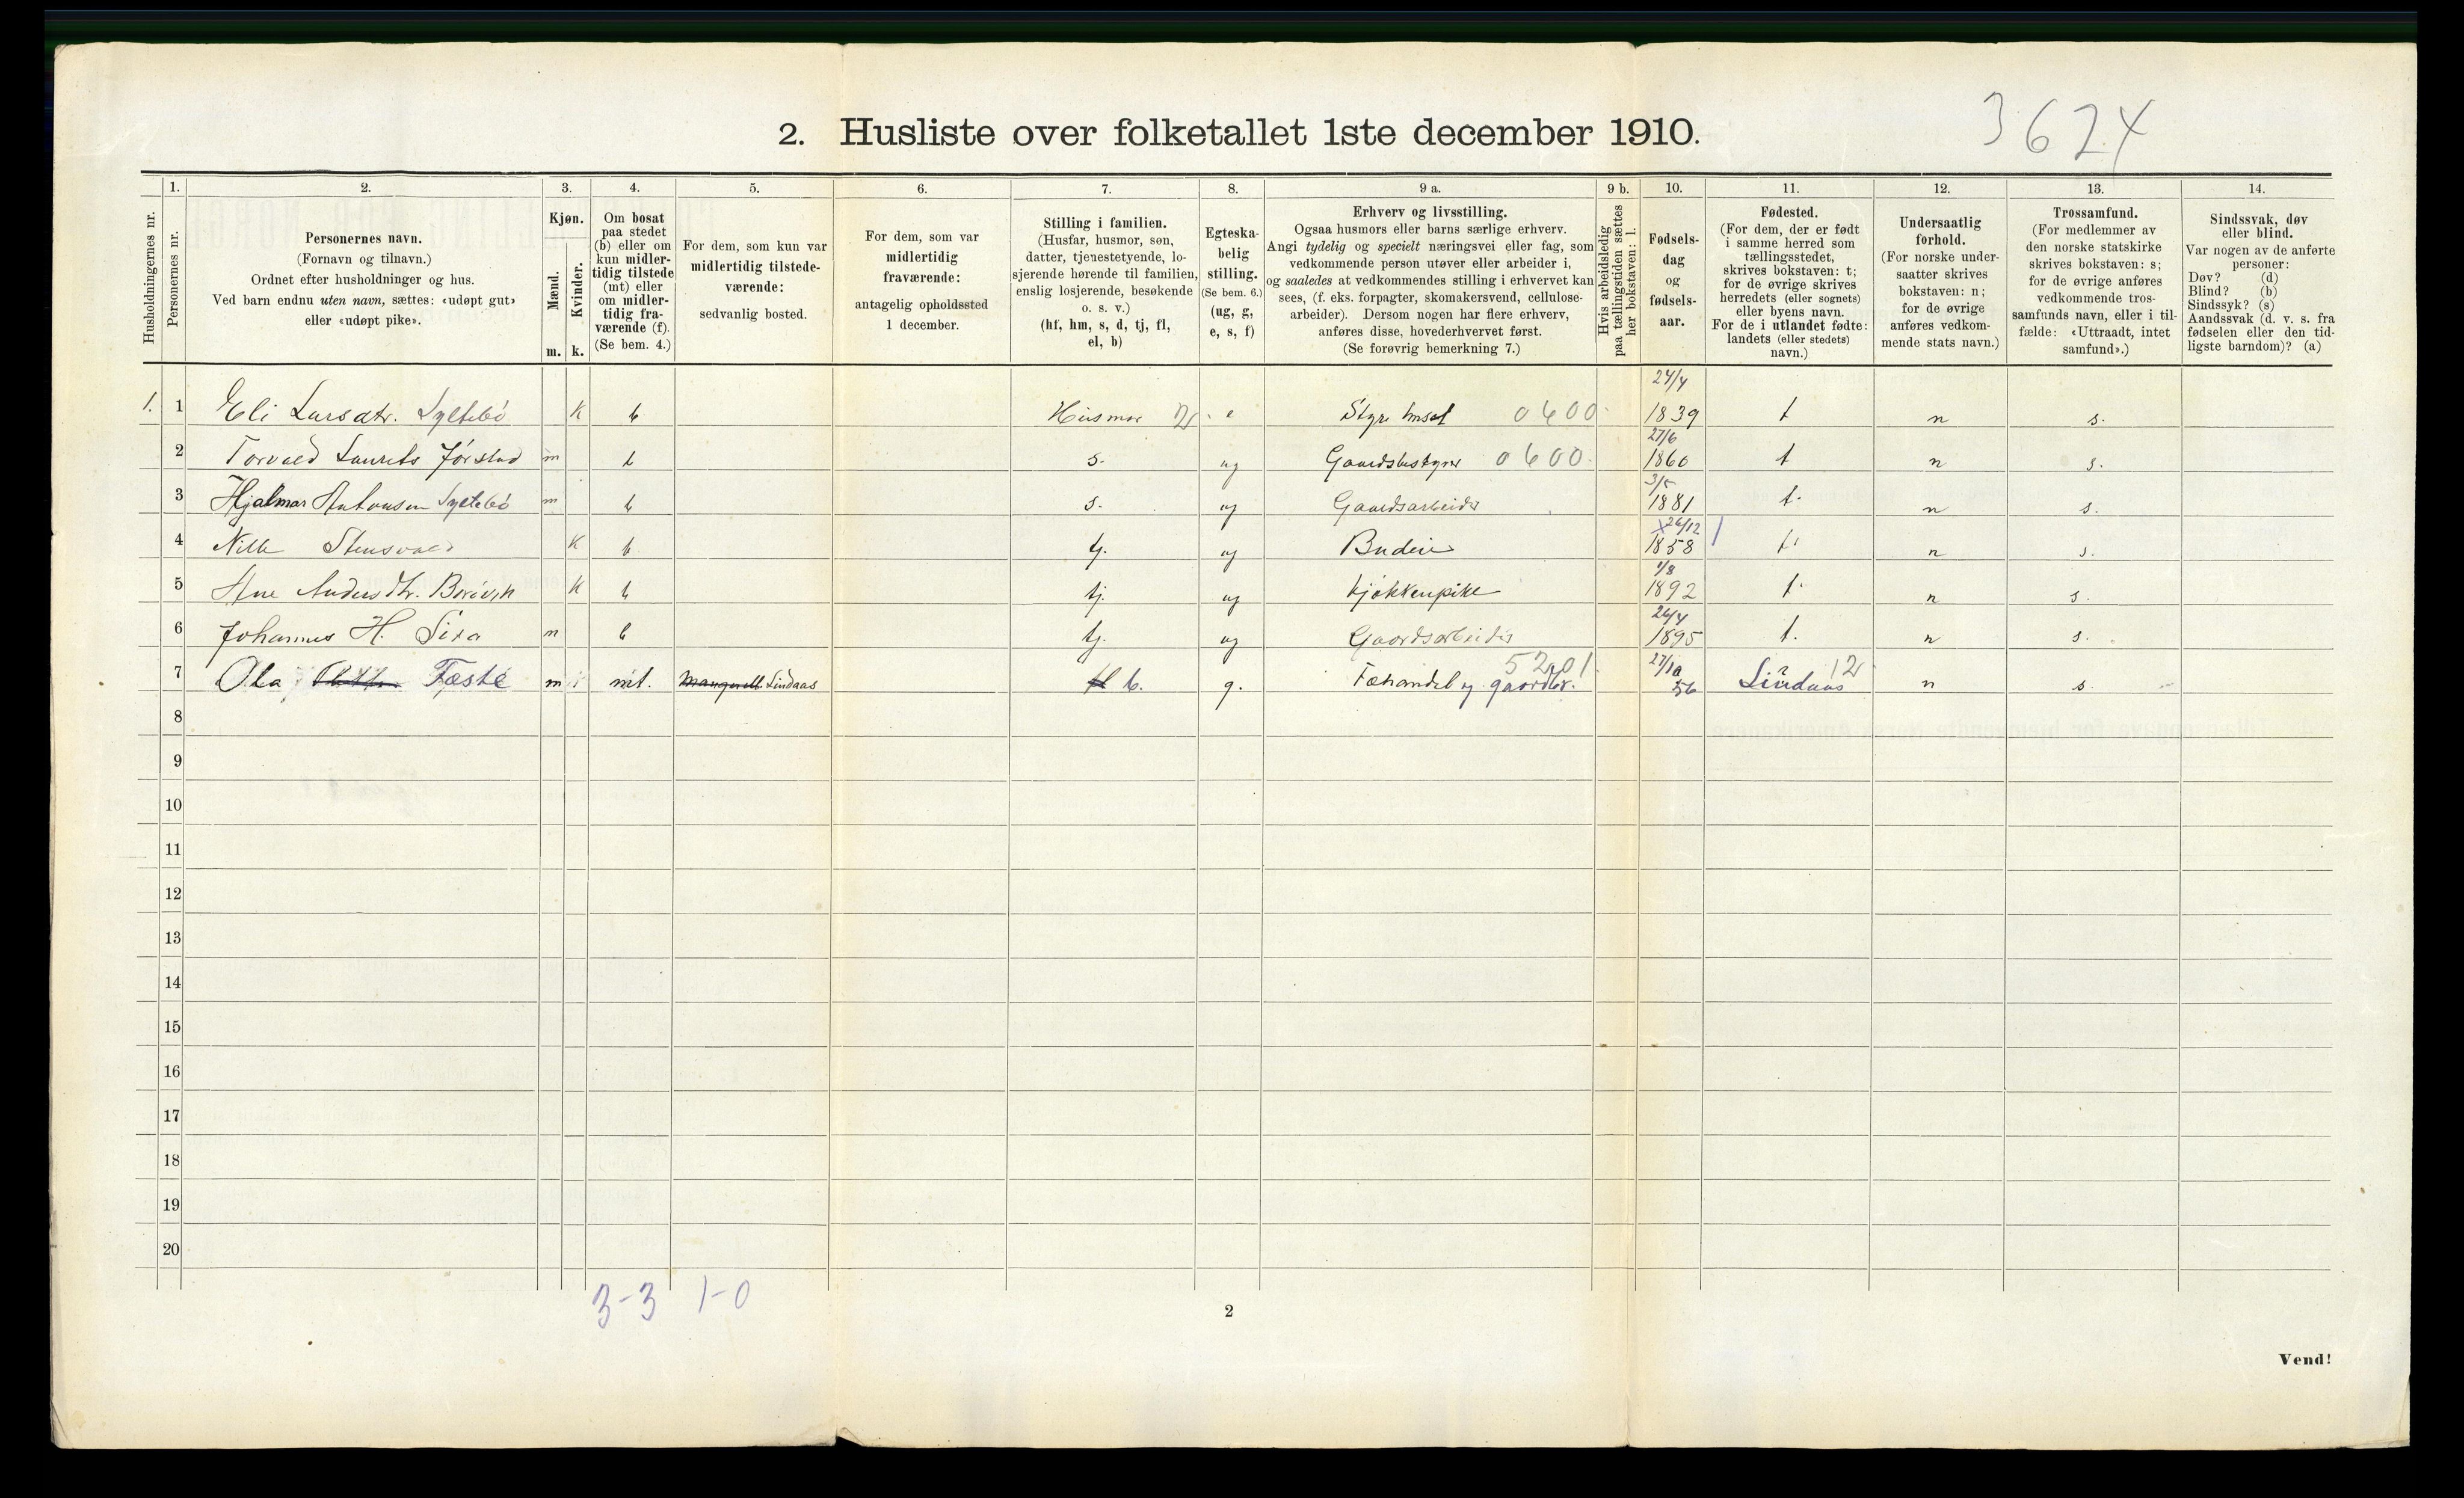 3624
2. Husliste over folketallet 1ste december 1910.
1. 2. 3. 4. 5. 6. 7. 8. 9 a. 9 b. 10. 11. 12. 13. 14.
Husholdningernes nr.
Personernes nr.
Personernes navn.
(Fornavn og tilnavn.)
Ordnet efter husholdninger og hus.
Ved barn endnu uten navn, sættes: «udøpt gut»
eller «udøpt pike».
Kjøn.
Mænd.
Kvinder.
m. k.
Om bosat
paa stedet
(b) eller om
kun midler-
tidig tilstede
(mt) eller
om midler-
tidig fra-
værende (f).
(Se bem. 4.)
For dem, som kun var
midlertidig tilstede-
værende:
sedvanlig bosted.
For dem, som var
midlertidig
fraværende:
antagelig opholdssted
1 december.
Stilling i familien.
(Husfar, husmor, søn,
datter, tjenestetyende, lo-
sjerende hørende til familien,
enslig losjerende, besøkende
o. s. v.)
(hf, hm, s, d, tj, fl,
el, b)
Egteska-
belig
stilling.
(Se bem. 6.)
(ug, g,
e, s, f)
Erhverv og livsstilling.
Ogsaa husmors eller barns særlige erhverv.
Angi tydelig og specielt næringsvei eller fag, som
vedkommende person utøver eller arbeider i,
og saaledes at vedkommendes stilling i erhvervet kan
sees, (f. eks. forpagter, skomakersvend, cellulose-
arbeider). Dersom nogen har flere erhverv,
anføres disse, hovederhvervet først.
(Se forøvrig bemerkning 7.)
Hvis arbeidsledig
paa tællingstiden sættes
her bokstaven: l.
Fødsels-
dag
og
fødsels-
aar.
Fødested.
(For dem, der er født
i samme herred som
tællingsstedet,
skrives bokstaven: t;
for de øvrige skrives
herredets (eller sognets)
eller byens navn.
For de i utlandet fødte:
landets (eller stedets)
navn.)
Undersaatlig
forhold.
(For norske under-
saatter skrives
bokstaven: n;
for de øvrige
anføres vedkom-
mende stats navn.)
Trossamfund.
(For medlemmer av
den norske statskirke
skrives bokstaven: s;
for de øvrige anføres
vedkommende tros-
samfunds navn, eller i til-
fælde: «Uttraadt, intet
samfund».)
Sindssvak, døv
eller blind.
Var nogen av de anførte
personer:
Døv? (d)
Blind? (b)
Sindssyk? (s)
Aandssvak (d. v. s. fra
fødselen eller den tid-
ligste barndom)? (a)
1. 1 Eli Larsdtr. Syltebø K b Husmor e Styre huset 0600 24/4 1839 t n s.
2 Torvald Laurits Jørstad m b s. ug Gaardsbestyrer 0600 27/6 1860 t n s.
3 Hjalmar Antonsen Syltebø m b s. ug Gaardsarbeider 3/5 1881 t. n s.
4 Nille Stensvold K b tj. ug Budeie 26/12 1858 t. n s.
5 Ane Andersdtr. K b tj. ug Kjøkkenpike 1/8 1892 t. n s.
6 Johannes H. Sira m b tj. ug Gaardsarbeider 26/4 1895 t. n s.
7 Ola Fæste m mt. Lindaas b. g. Fæhandel og gaardbr. 5201 27/10 56 Lindaas 12 n s.
8
9
10
11
12
13
14
15
16
17
18
19
20
3-3 1-0
2
Vend!